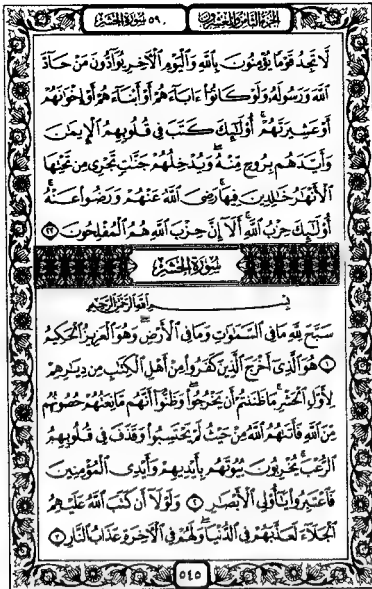 الجزء الثامن والعشرون ٥٩ سورة الحشر
لَا تَجِدُ قَوْمًا يُؤْمِنُونَ بِاللَّهِ وَالْيَوْمِ الْآخِرِ يُوَادُّونَ مَنْ حَادَّ
اللَّهَ وَرَسُولَهُ وَلَوْ كَانُوا ءَابَاءَهُمْ أَوْ أَبْنَاءَهُمْ أَوْ إِخْوَانَهُمْ
أَوْ عَشِيرَتَهُمْ أُولَٰئِكَ كَتَبَ فِي قُلُوبِهِمُ الْإِيمَانَ
وَأَيَّدَهُم بِرُوحٍ مِّنْهُ وَيُدْخِلُهُمْ جَنَّاتٍ تَجْرِي مِن تَحْتِهَا
الْأَنْهَارُ خَالِدِينَ فِيهَا رَضِيَ اللَّهُ عَنْهُمْ وَرَضُوا عَنْهُ
أُولَٰئِكَ حِزْبُ اللَّهِ أَلَا إِنَّ حِزْبَ اللَّهِ هُمُ الْمُفْلِحُونَ ٢٢
سُورَةُ الْحَشْرِ
بِسْمِ اللَّهِ الرَّحْمَٰنِ الرَّحِيمِ
سَبَّحَ لِلَّهِ مَا فِي السَّمَاوَاتِ وَمَا فِي الْأَرْضِ وَهُوَ الْعَزِيزُ الْحَكِيمُ
١ هُوَ الَّذِي أَخْرَجَ الَّذِينَ كَفَرُوا مِنْ أَهْلِ الْكِتَابِ مِن دِيَارِهِمْ
لِأَوَّلِ الْحَشْرِ مَا ظَنَنتُمْ أَن يَخْرُجُوا وَظَنُّوا أَنَّهُم مَّانِعَتُهُمْ حُصُونُهُم
مِّنَ اللَّهِ فَأَتَاهُمُ اللَّهُ مِنْ حَيْثُ لَمْ يَحْتَسِبُوا وَقَذَفَ فِي قُلُوبِهِمُ
الرُّعْبَ يُخْرِبُونَ بُيُوتَهُم بِأَيْدِيهِمْ وَأَيْدِي الْمُؤْمِنِينَ
فَاعْتَبِرُوا يَا أُولِي الْأَبْصَارِ ٢ وَلَوْلَا أَن كَتَبَ اللَّهُ عَلَيْهِمُ
الْجَلَاءَ لَعَذَّبَهُمْ فِي الدُّنْيَا وَلَهُمْ فِي الْآخِرَةِ عَذَابُ النَّارِ ٣
٥٤٥